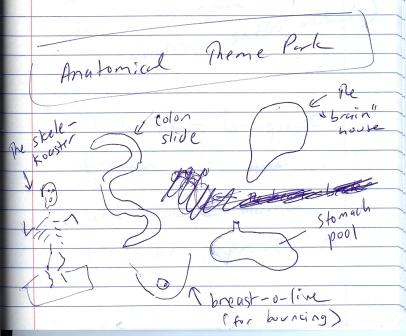 Anatomical Theme Park
The skele-
koaster
colon
slide
The
"brain"
house
stomach
pool
breast-o-live
(for bouncing)